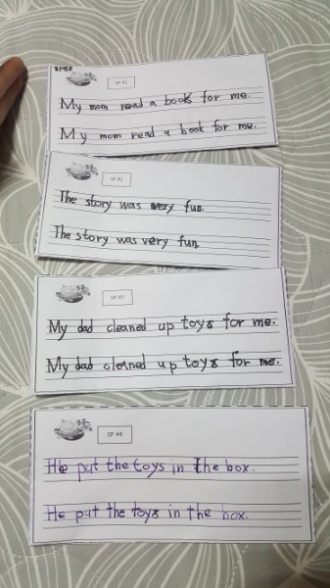 SP #1
My mom read a book for me.
My mom read a book for me.
SP #2
The story was very fun.
The story was very fun.
SP #3
My dad cleaned up toys for me.
My dad cleaned up toys for me.
SP #4
He put the toys in the box.
He put the toys in the box.